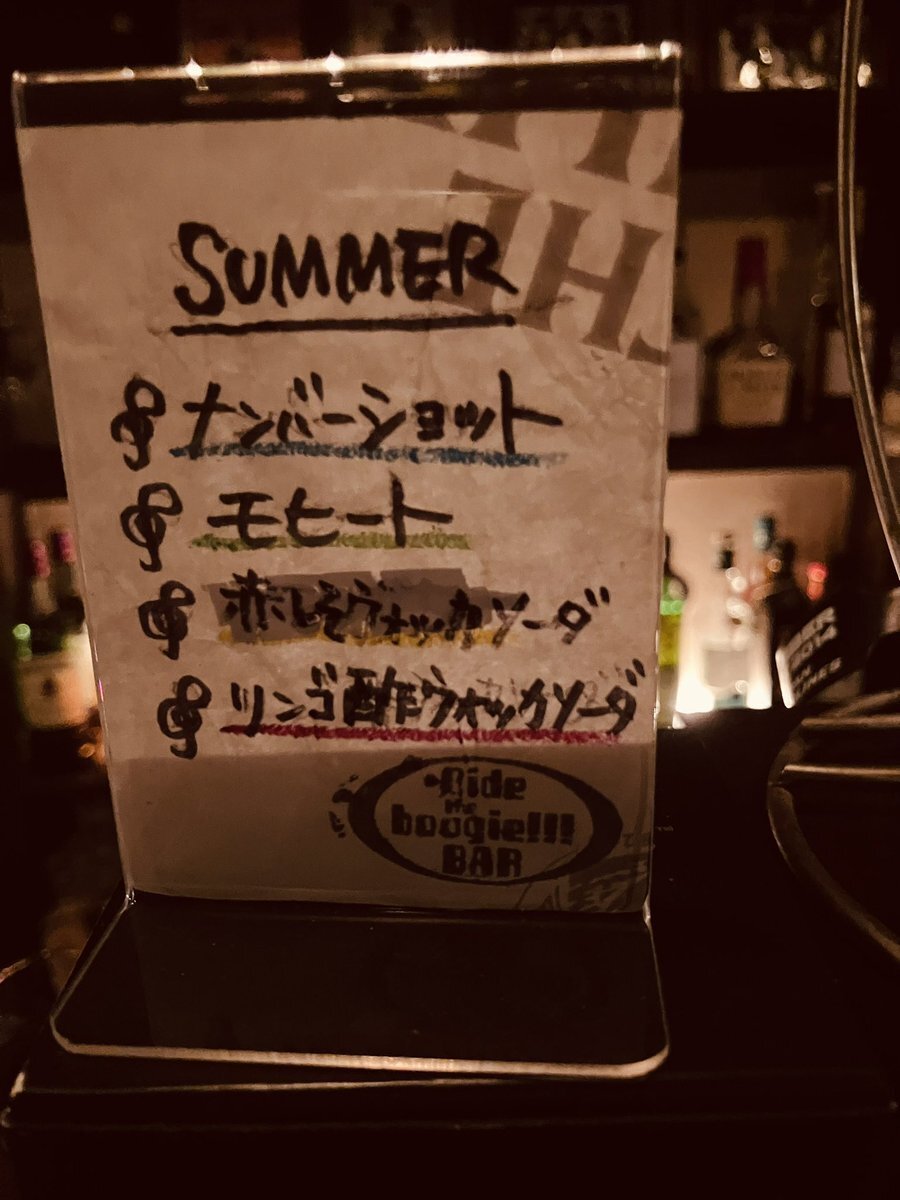 SUMMER
ナンバーショット
モヒート
赤しそヴォッカソーダ
リンゴ酢ウォッカソーダ
Ride
the
boogie!!!
BAR